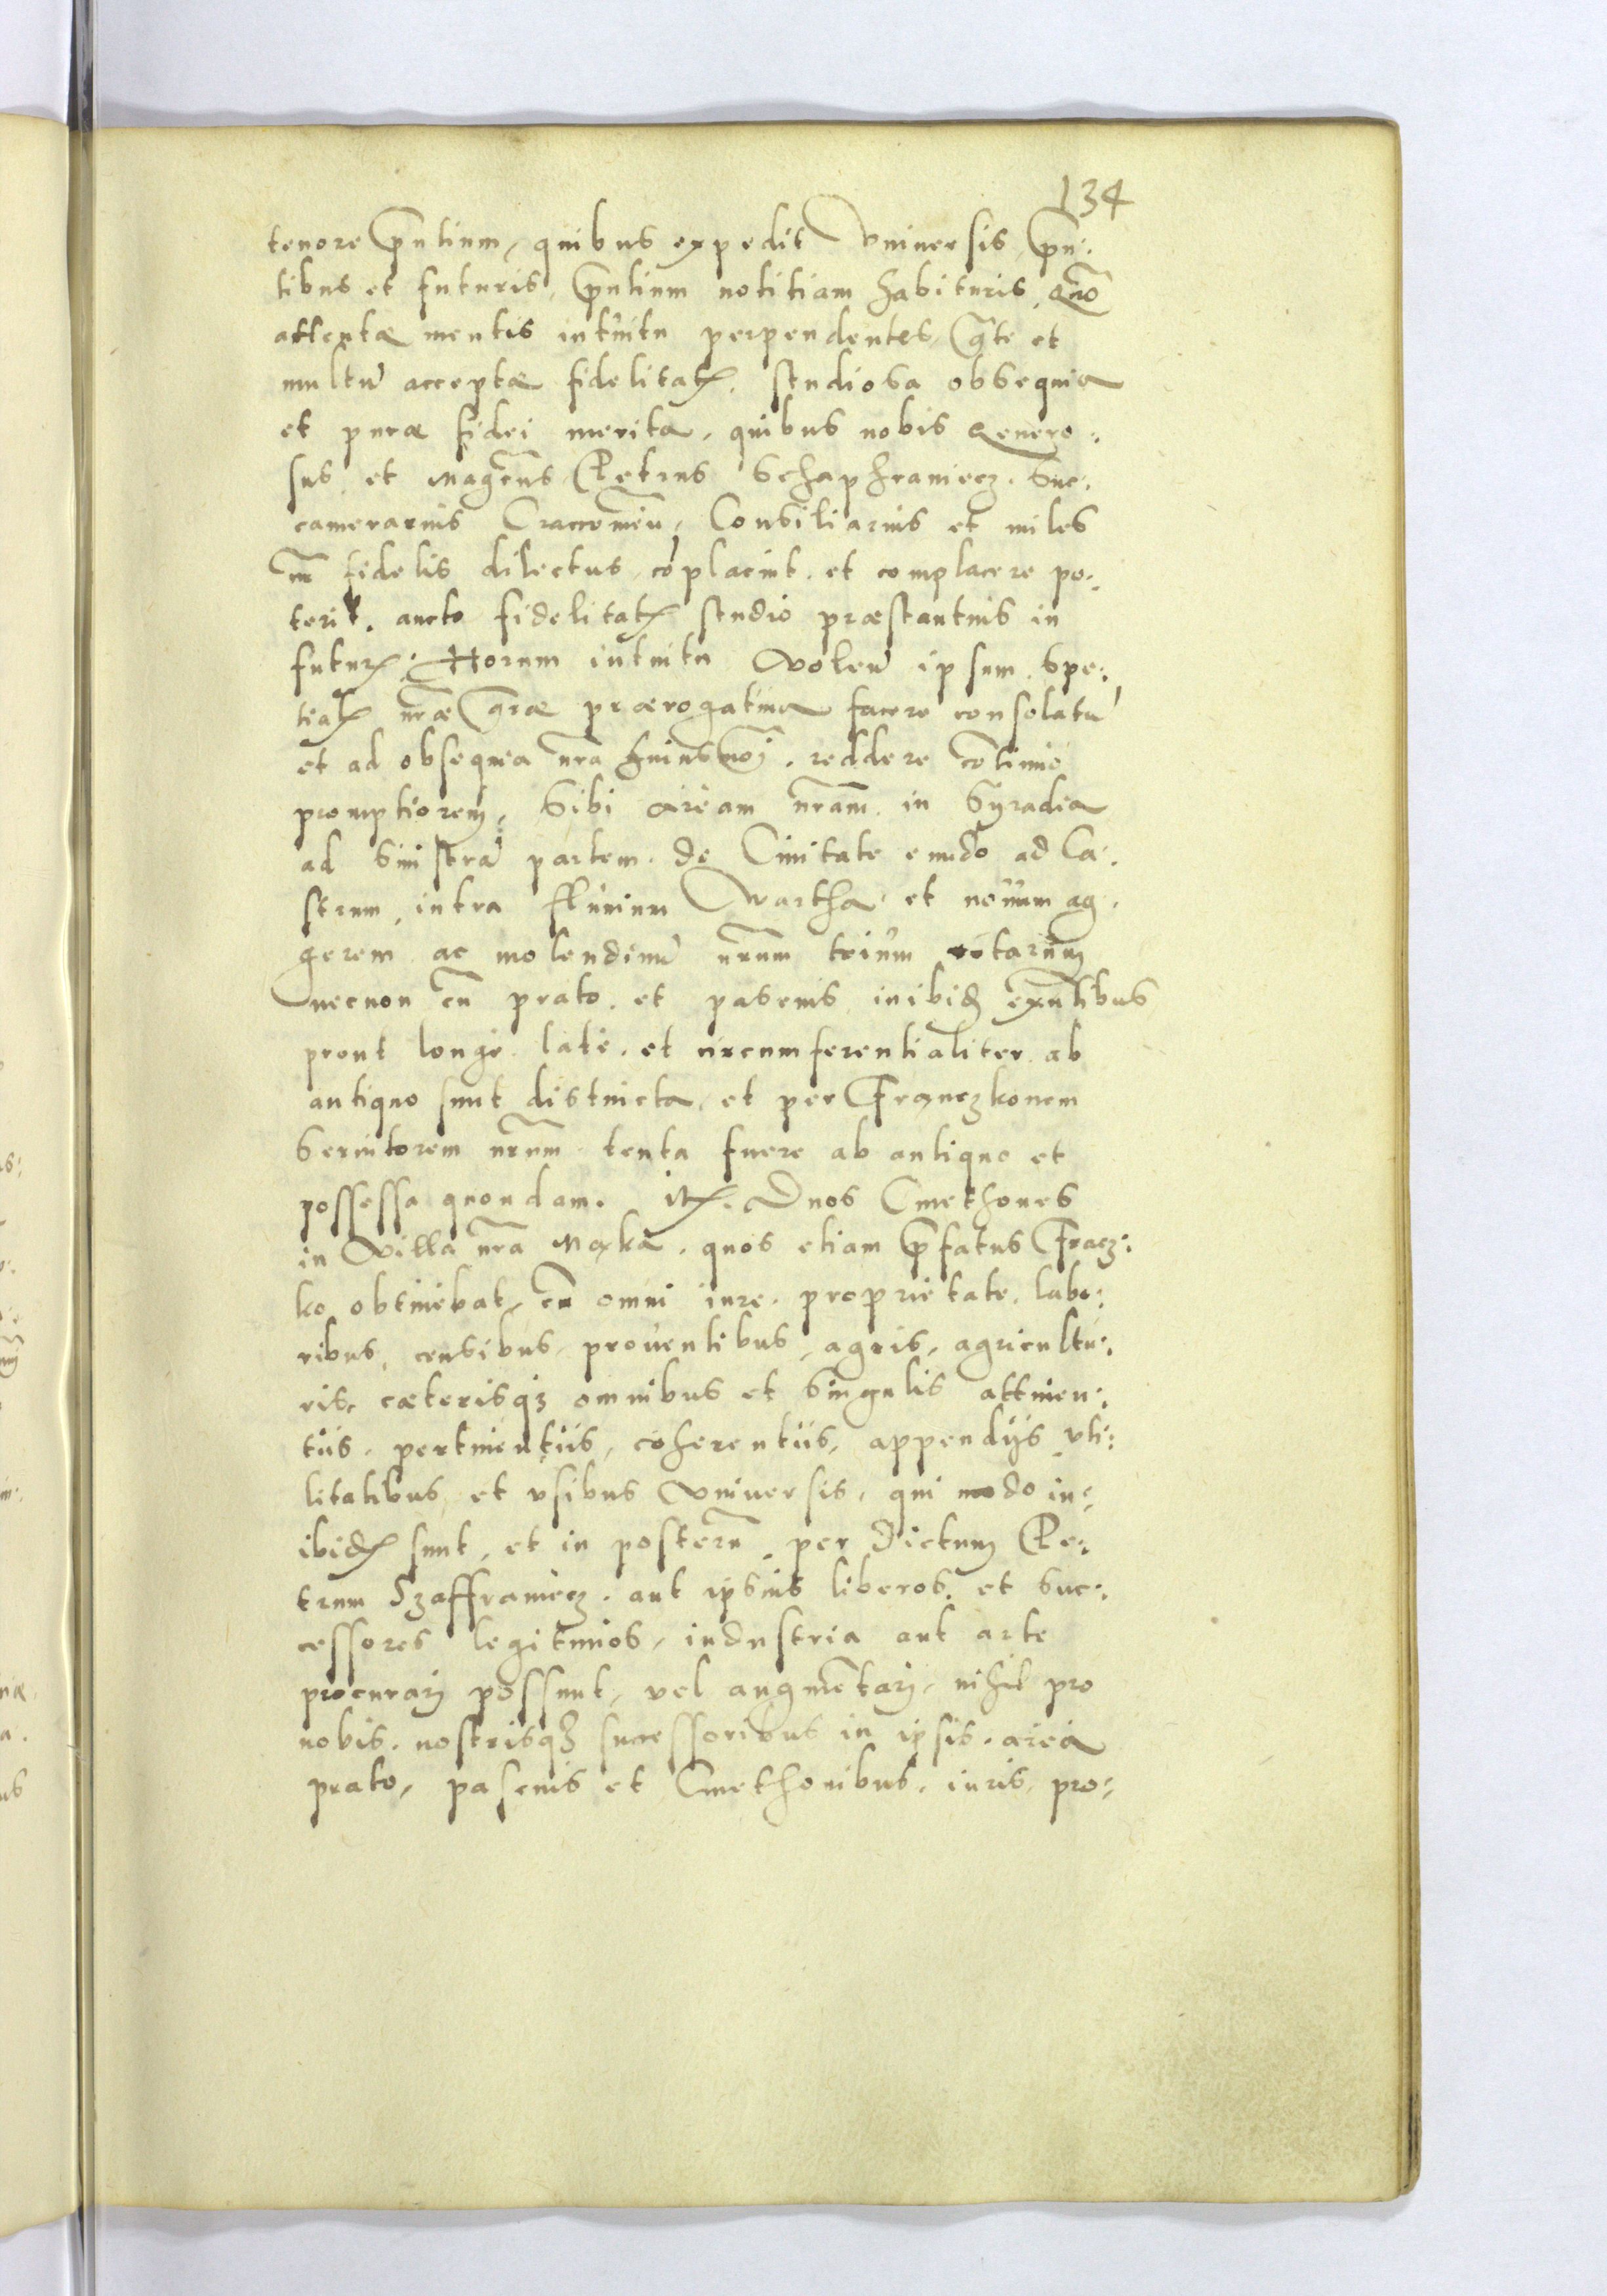 134
tenore p̃ntium, quibus expedit Vniuersis, p̃n:
tibus et futuris, p̃ntium notitiam habituris, Quõ
attentæ mentis intuitu perpendentes, g̃te et
multũ acceptæ fidelitatꝭ, studiosa obsequia
et puræ fidei merita, quibus nobis Genero:
sus et Mag̃cus Petrus Schaphraniecz. Suc:
camerarius Craccouien̄, Consiliarius et miles
ñr fidelis dilectus, cõplacuit. et complacere po:
terit. aucto fidelitatꝭ studio præstantius in
futurꝭ. Horum intuitu Volen̄ ipsum. Spe:
tialꝭ ñræ g̃ræ prærogatiua facere consolatũ
et ad obsequia ñra huiusmõi. reddere cõtinuo
promptiorem, Sibi Aream ñram in Syradia
ad Sinistrã partem. de Ciuitate eundo ad Ca:
strum, intra fluuium Wartha. et nouum ag.
gerem ac molendinũ ñrum trium rotarum
necnon cũ prato. et pascuis inibid̃ exñtibus
prout longe. late. et circumferentialiter ab
antiquo sunt distincta, et per Franczkonem
Seruitorem ñrum tenta fuere ab antiquo et
possessa quondam. itꝭ. Duos Cmethones
in Villa ñra Maka. quos etiam p̃fatus Fracz:
ko obtinebat, cũ omni iure. proprietate. labo:
ribus, censibus, prouentibus, agris, agricultu:
ris, cæterisqꝫ omnibus et Singulis attinen:
tiis, pertinentiis, coherentiis, appendijs vti:
litatibus, et vsibus Vniuersis, qui modo in:
ibidꝭ sunt, et in posterũ per Dictum Pe:
trum Szaffraniecz. aut ipsius liberos. et Suc:
cessores legitimos, industria aut arte
procurarj possunt, vel augmẽtarj, nihil pro
nobis. nostrisqꝫ successoribus in ipsis. area
prato, pascuis et Cmethonibus. iuris, pro: